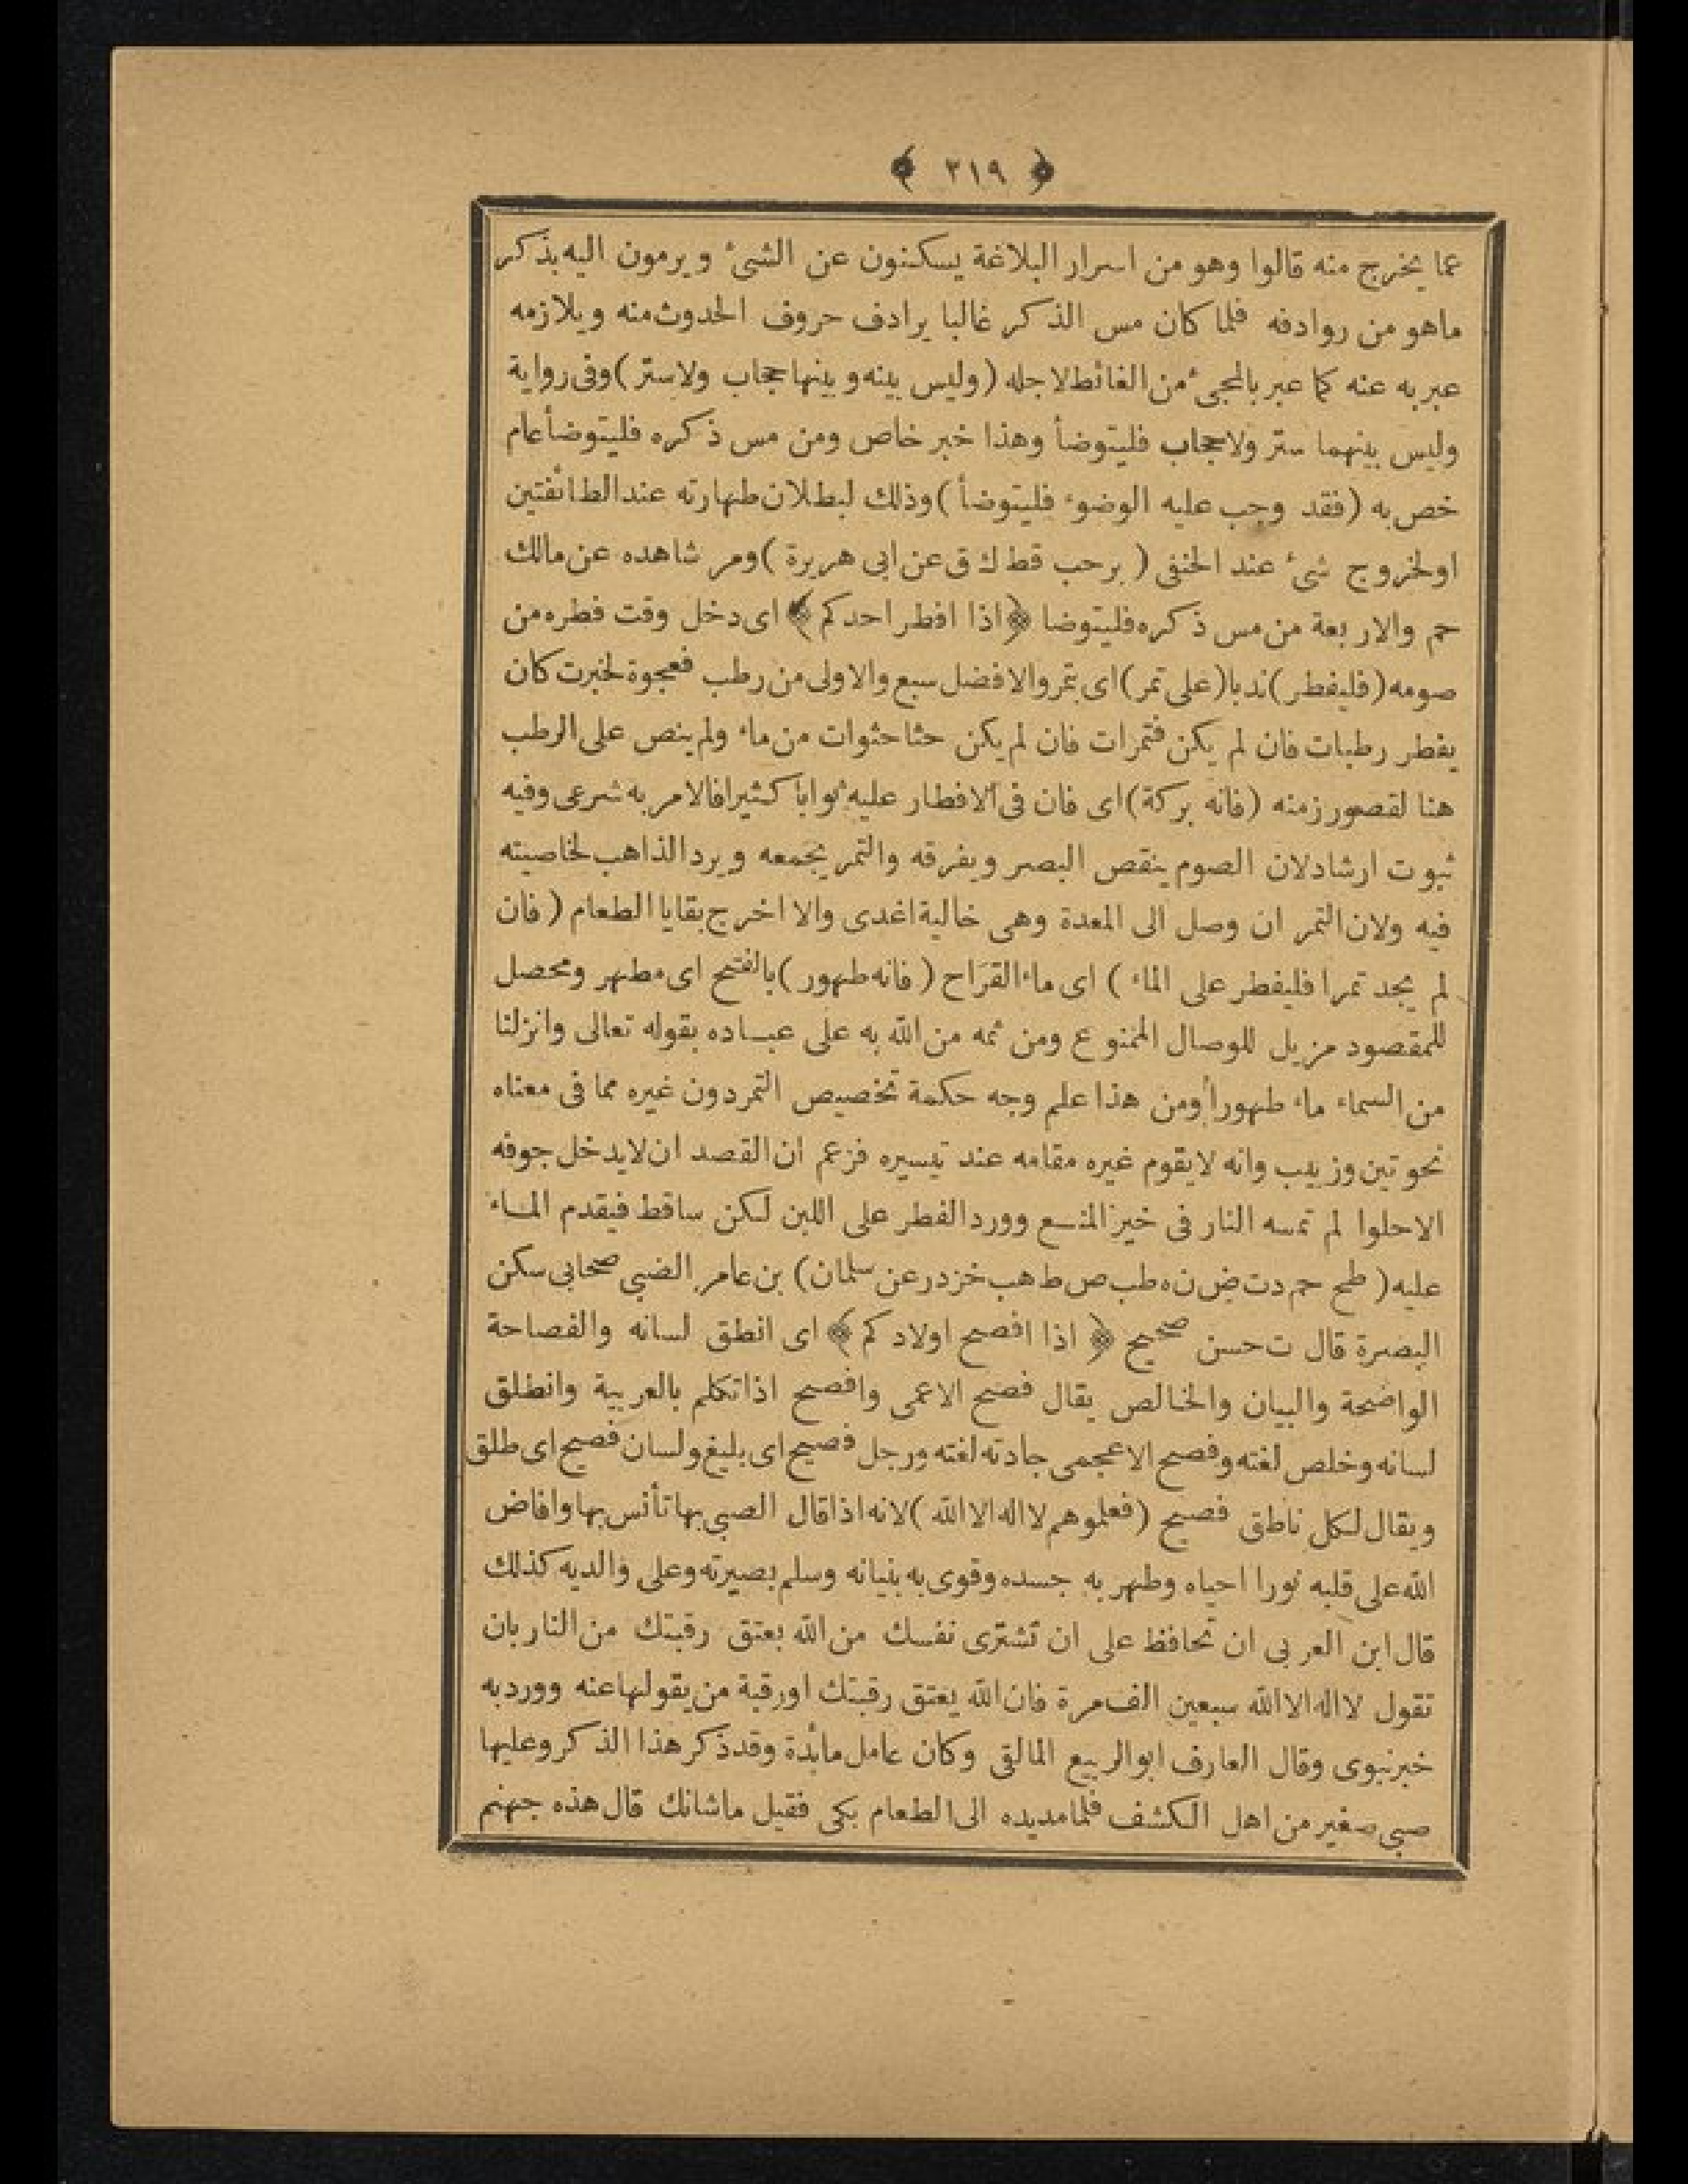 ﴿ ٣١٩ ﴾
عما يخرج منه قالوا وهو من اسرار البلاغة يسكنون عن الشئ ويرمون اليه بذكر
ماهو من روادفه فلما كان مس الذكر غالبا يرادف حروف الحدوث منه ويلازمه
عبر به عنه كما عبر بالمجئ من الغائط لاجله (وليس بينه وبينها حجاب ولاستر) وفى رواية
وليس بينهما ستر ولاحجاب فليتوضأ وهذا خبر خاص ومن مس ذكره فليتوضأ عام
خص به (فقد وجب عليه الوضوء فليتوضأ) وذلك لبطلان طهارته عند الطائفتين
اولخروج شئ عند الحنفى (برحب قط ك ق عن ابى هريرة) ومر شاهده عن مالك
حم والاربعة من مس ذكره فليتوضا ﴿اذا افطر احدكم﴾ اى دخل وقت فطره من
صومه (فليفطر) ندبا (على تمر) اى بتمر والافضل سبع والاولى من رطب فعجوة لخبرت كان
يفطر رطبات فان لم يكن فتمرات فان لم يكن حثا حثوات من ماء ولم ينص على الرطب
هنا لقصور زمنه (فانه بركة) اى فان فى الافطار عليه ثوابا كثيرا فالامر به شرعى وفيه
ثبوت ارشاد لان الصوم ينقص البصر ويفرقه والتمر يجمعه ويرد الذاهب لخاصيته
فيه ولان التمر ان وصل الى المعدة وهى خالية اغدى والا اخرج بقايا الطعام (فان
لم يجد تمرا فليفطر على الماء) اى ماء القرَاح (فانه طهور) بالفتح اى مطهر ومحصل
للمقصود مزيل للوصال الممنوع ومن ثمه من الله به على عباده بقوله تعالى وانزلنا
من السماء ماء طهوراً ومن هذا علم وجه حكمة تخصيص التمر دون غيره مما فى معناه
نحو تين وزبيب وانه لايقوم غيره مقامه عند تيسيره فزعم ان القصد ان لايدخل جوفه
الاحلوا لم تمسه النار فى خيز المنع وورد الفطر على اللبن لكن ساقط فيقدم الماء
عليه (طح حم دت ض ن ه طب ص ط هب خزدر عن سلمان) بن عامر الضبى صحابى سكن
البصرة قال ت حسن صحيح ﴿ اذا افصح اولادكم ﴾ اى انطق لسانه والفصاحة
الواضحة والبيان والخالص يقال فصح الاعمى وافصح اذاتكلم بالعربية وانطلق
لسانه وخلص لغته وفصح الاعجمى جادته لغته ورجل فصيح اى بليغ ولسان فصيح اى طلق
ويقال لكل ناطق فصيح (فعلموهم لااله الا الله) لانه اذا قال الصبى بها تأنس بها وافاض
الله على قلبه نورا احياه وطهر به جسده وقوى به بنيانه وسلم بصيرته وعلى والديه كذلك
قال ابن العربى ان تحافظ على ان تشترى نفسك من الله بعتق رقبتك من النار بان
تقول لااله الا الله سبعين الف مرة فان الله يعتق رقبتك اورقبة من يقولها عنه وورد به
خبر نبوى وقال العارف ابوالربيع المالقى وكان عامل مائدة وقد ذكر هذا الذكر وعليها
صبى صغير من اهل الكشف فلما مديده الى الطعام بكى فقيل ماشانك قال هذه جهنم